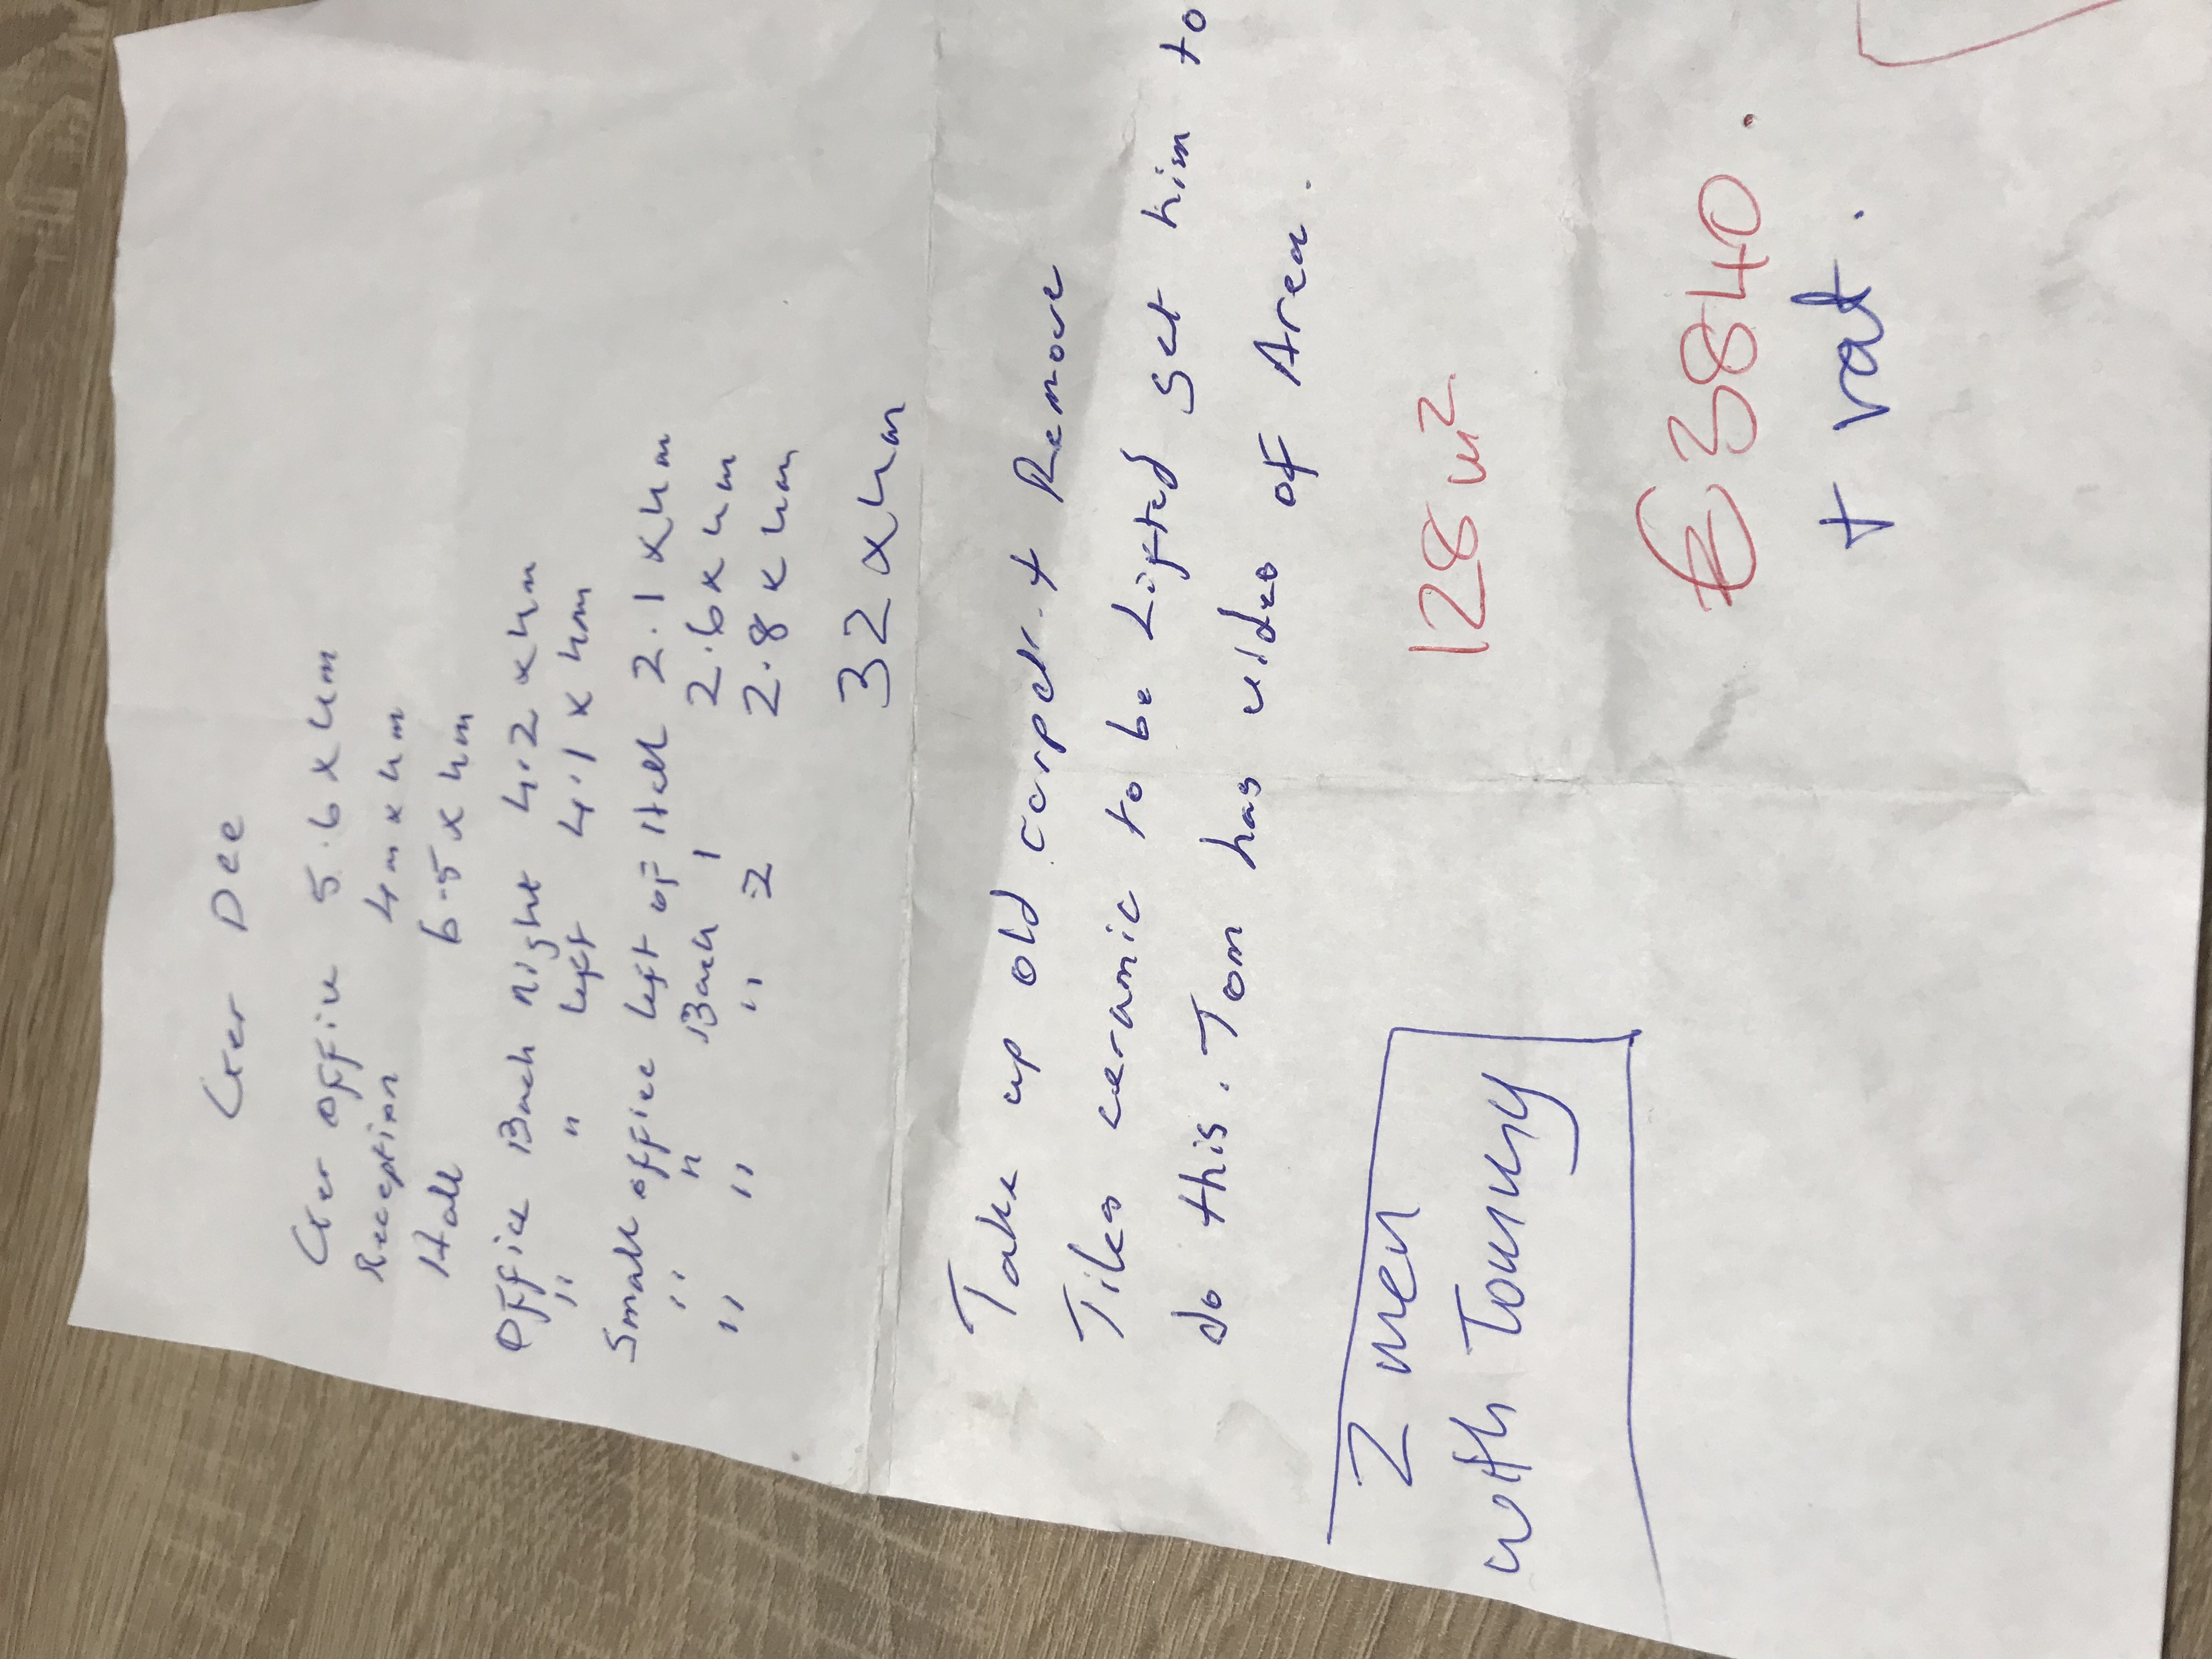 Ger Dee
Ger office 5.6 x 4m
Reception 4m x 4m
Hall 6.5 x 4m
Office Back Right 4.2 x 4m
" " Left 4.1 x 4m
Small office left of Hall 2.1 x 4m
" " Back 1 2.6 x 4m
" " " 2 2.8 x 4m
32 x 4m
Take up old carpet + Remove
Tiles ceramic to be Lifted Set him to
do this. Tom has video of Area.
128 m²
2 men
with Tommy
€3840.
+ vat.